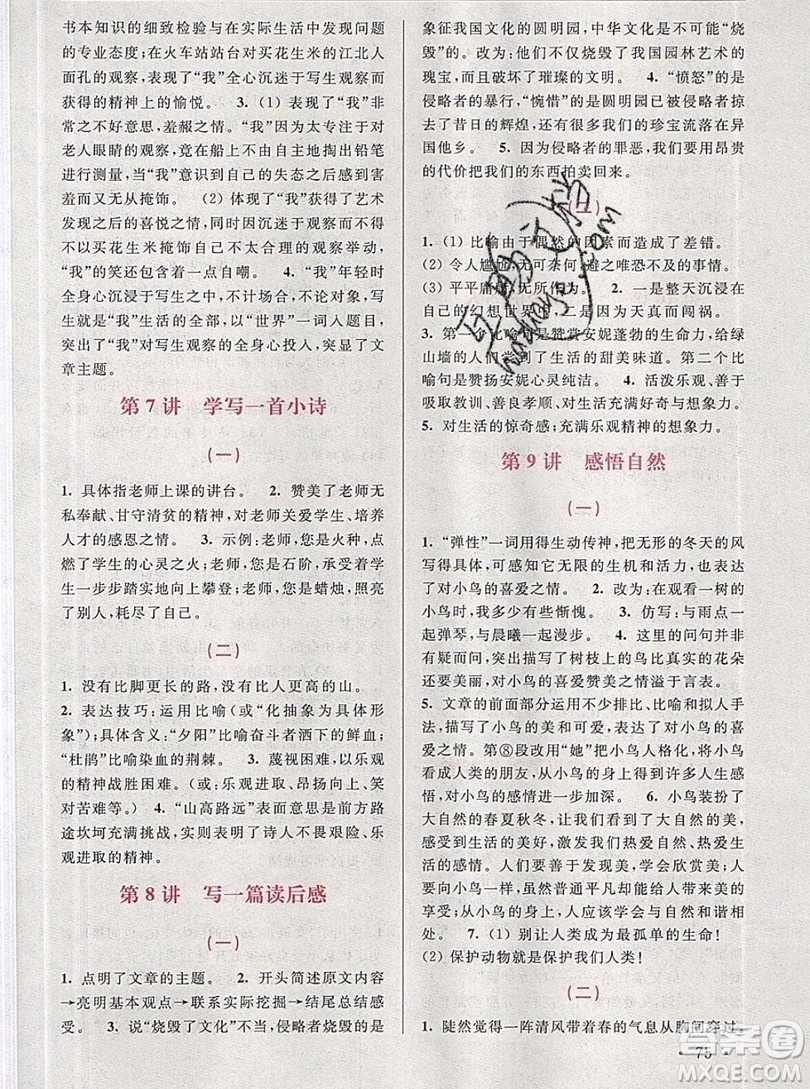 书本知识的细致检验与在实际生活中发现问题
的专业态度；在火车站站台对买花生米的江北人
面孔的观察，表现了“我”全心沉迷于写生观察而
获得的精神上的愉悦。 3.（1）表现了“我”非
常之不好意思，羞赧之情。“我”因为太专注于对
老人眼睛的观察，竟在船上不由自主地掏出铅笔
进行测量，当“我”意识到自己的失态之后感到害
羞而无从掩饰。（2）体现了“我”获得了艺术
发现之后的喜悦之情，同时因沉迷于观察而对
对买花生米作出不太合理的观察举动，
“我”的笑还包含着一点自嘲。 4. “我”将
全身心沉浸于写生之中，不计场合，不论环境，写
生就是“我”生活的全部，以“世界”一词入题目，
突出“我”对写生观察的全身心投入，突显了文
章主题。
第7讲 学写一首小诗
（一）
1. 具体指老师上课的讲台。 2. 赞美了老师无
私奉献、甘守清贫的精神，对老师关爱学生、培养
人才的感恩之情。 3. 示例：老师，您是火种，点
燃了学生的心灵之火；老师，您是石阶，承受着学
生一步步踏实地向上攀登；老师，您是蜡烛，照亮
了别人，耗尽了自己。
（二）
1. 没有比脚更长的路，没有比人更高的山。
2. 表达技巧：运用比喻（或“化抽象为具体形
象”）；具体含义：“夕阳”比喻奋斗者洒下的鲜血；
“杜鹃”比喻染血的荆棘。 3. 蔑视困难，以乐观
的精神战胜困难。（或：乐观进取、昂扬向上、笑
对苦难等。） 4. “山高路远”表面意思是前方路
途坎坷充满挑战，实则表明了诗人不畏艰险、乐
观进取的精神。
第8讲 写一篇读后感
（一）
1. 点明了文章的主题。 2. 开头简述原文内容
→亮明基本观点→联系实际挖掘→结尾总结感
受。 3. 说“烧毁了文化”不当，侵略者烧毁的是
象征我国文化的圆明园，中华文化是不可能“烧
毁”的。改为：他们不仅烧毁了我国园林艺术的
瑰宝，而且破坏了璀璨的文明。 4. “愤怒”的是
侵略者的暴行，“惋惜”的是圆明园被侵略者掠
去了昔日的辉煌，许许多多的珍宝流落在异
国他乡。 5. 因为侵略者的罪恶，我们要用昂贵
的代价将我们的东西拍卖回来。
（二）
1.（1）比喻由于偶然的因素而造成了差错。
（2）令人尴尬，无可奈何，避之唯恐不及的事情。
（3）平平庸庸，无所 2. 一是整天沉浸在
自己的幻想世界里，二是因为天真而闯祸。
3. 第一个比喻句是赞赏安妮蓬勃的生命力，给绿
山墙的人们尝到了生活的甜美味道。第二个比
喻句是赞扬安妮心灵纯洁。 4. 活泼乐观、善于
吸取教训、善良孝顺、对生活充满好奇与想象力。
5. 对生活的惊奇感；充满乐观精神的想象力。
第9讲 感悟自然
（一）
1. “弹性”一词用得生动传神，把无形的冬天的风
写得具体，可感知它无限的生机和活力，也表达
了对小鸟的喜爱之情。 2. 改为：在观看一树的
小鸟时，我多少有些惭愧。 3. 仿写：与雨点一
起弹琴，与晨曦一起漫步。 4. 这里的问句并非
有疑而问，突出强调了树枝上的鸟比真实的花朵
还要美丽，作者对小鸟的喜爱赞美之情溢于言表。
5. 文章的前面部分运用不少排比、比喻和拟人手
法，描写了小鸟的美和可爱，表达了对小鸟的喜
爱。第⑧段改用“她”把小鸟人格化，将小鸟
看成人类的朋友，从小鸟身上得到许多人生感
悟，对小鸟的感情进一步加深。 6. 小鸟装点了
大自然的春夏秋冬，让我们看到了大自然的美，
感受到生活的美好，激发我们热爱自然、热爱生
活的美好情感。人类要善于发现美，学会欣赏美，
美的东西是无处不在的，虽然普通平凡却有美的
享受；从小鸟身上，人应该学会珍惜和感激所有。
7.（1）别让人类成为最孤单的生命！
（2）保护动物就是保护我们人类！
（二）
1. 陡然觉得一阵清风带着春的气息从胸间穿过，
· 75 ·
答案圈
MXQE.COM